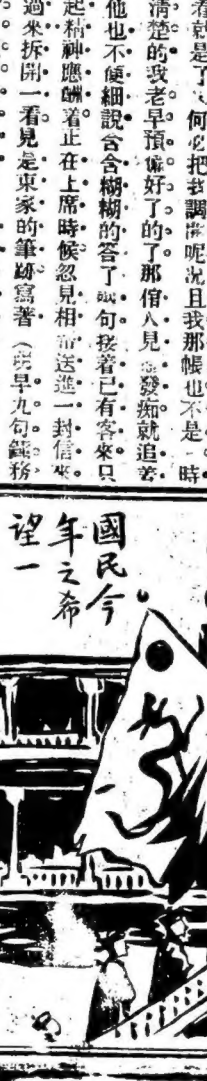 着就是了何必把我調開呢況且我那帳也不是一時
清楚的我老早預備好了的了那倌人見發痴就追着
他也不便細說含含糊糊的答了句接着已有客來只
起精神應酬着正在上席時候忽見相送進一封信來
過來拆開一看見是東家的筆跡寫著（明早九句鐘務
國民今
年之希
望一